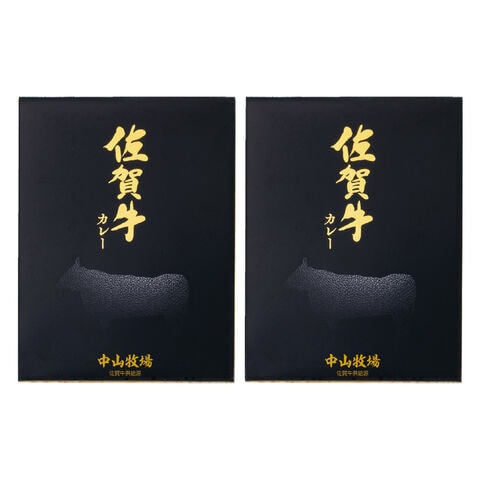 佐賀牛
カレー
中山牧場
佐賀牛供給源
佐賀牛
カレー
中山牧場
佐賀牛供給源